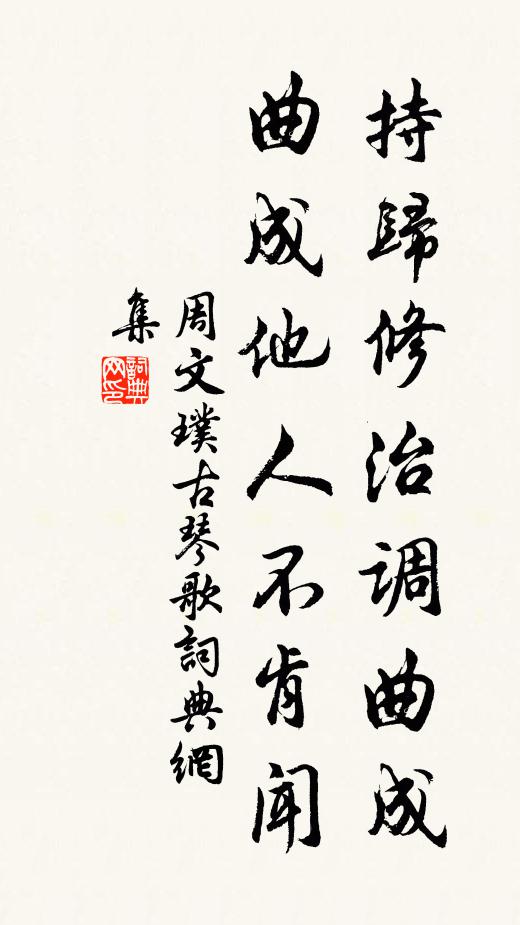 持歸修治調曲成
曲成他人不肯聞
周文璞古琴歌詞典網
集
詞典网印